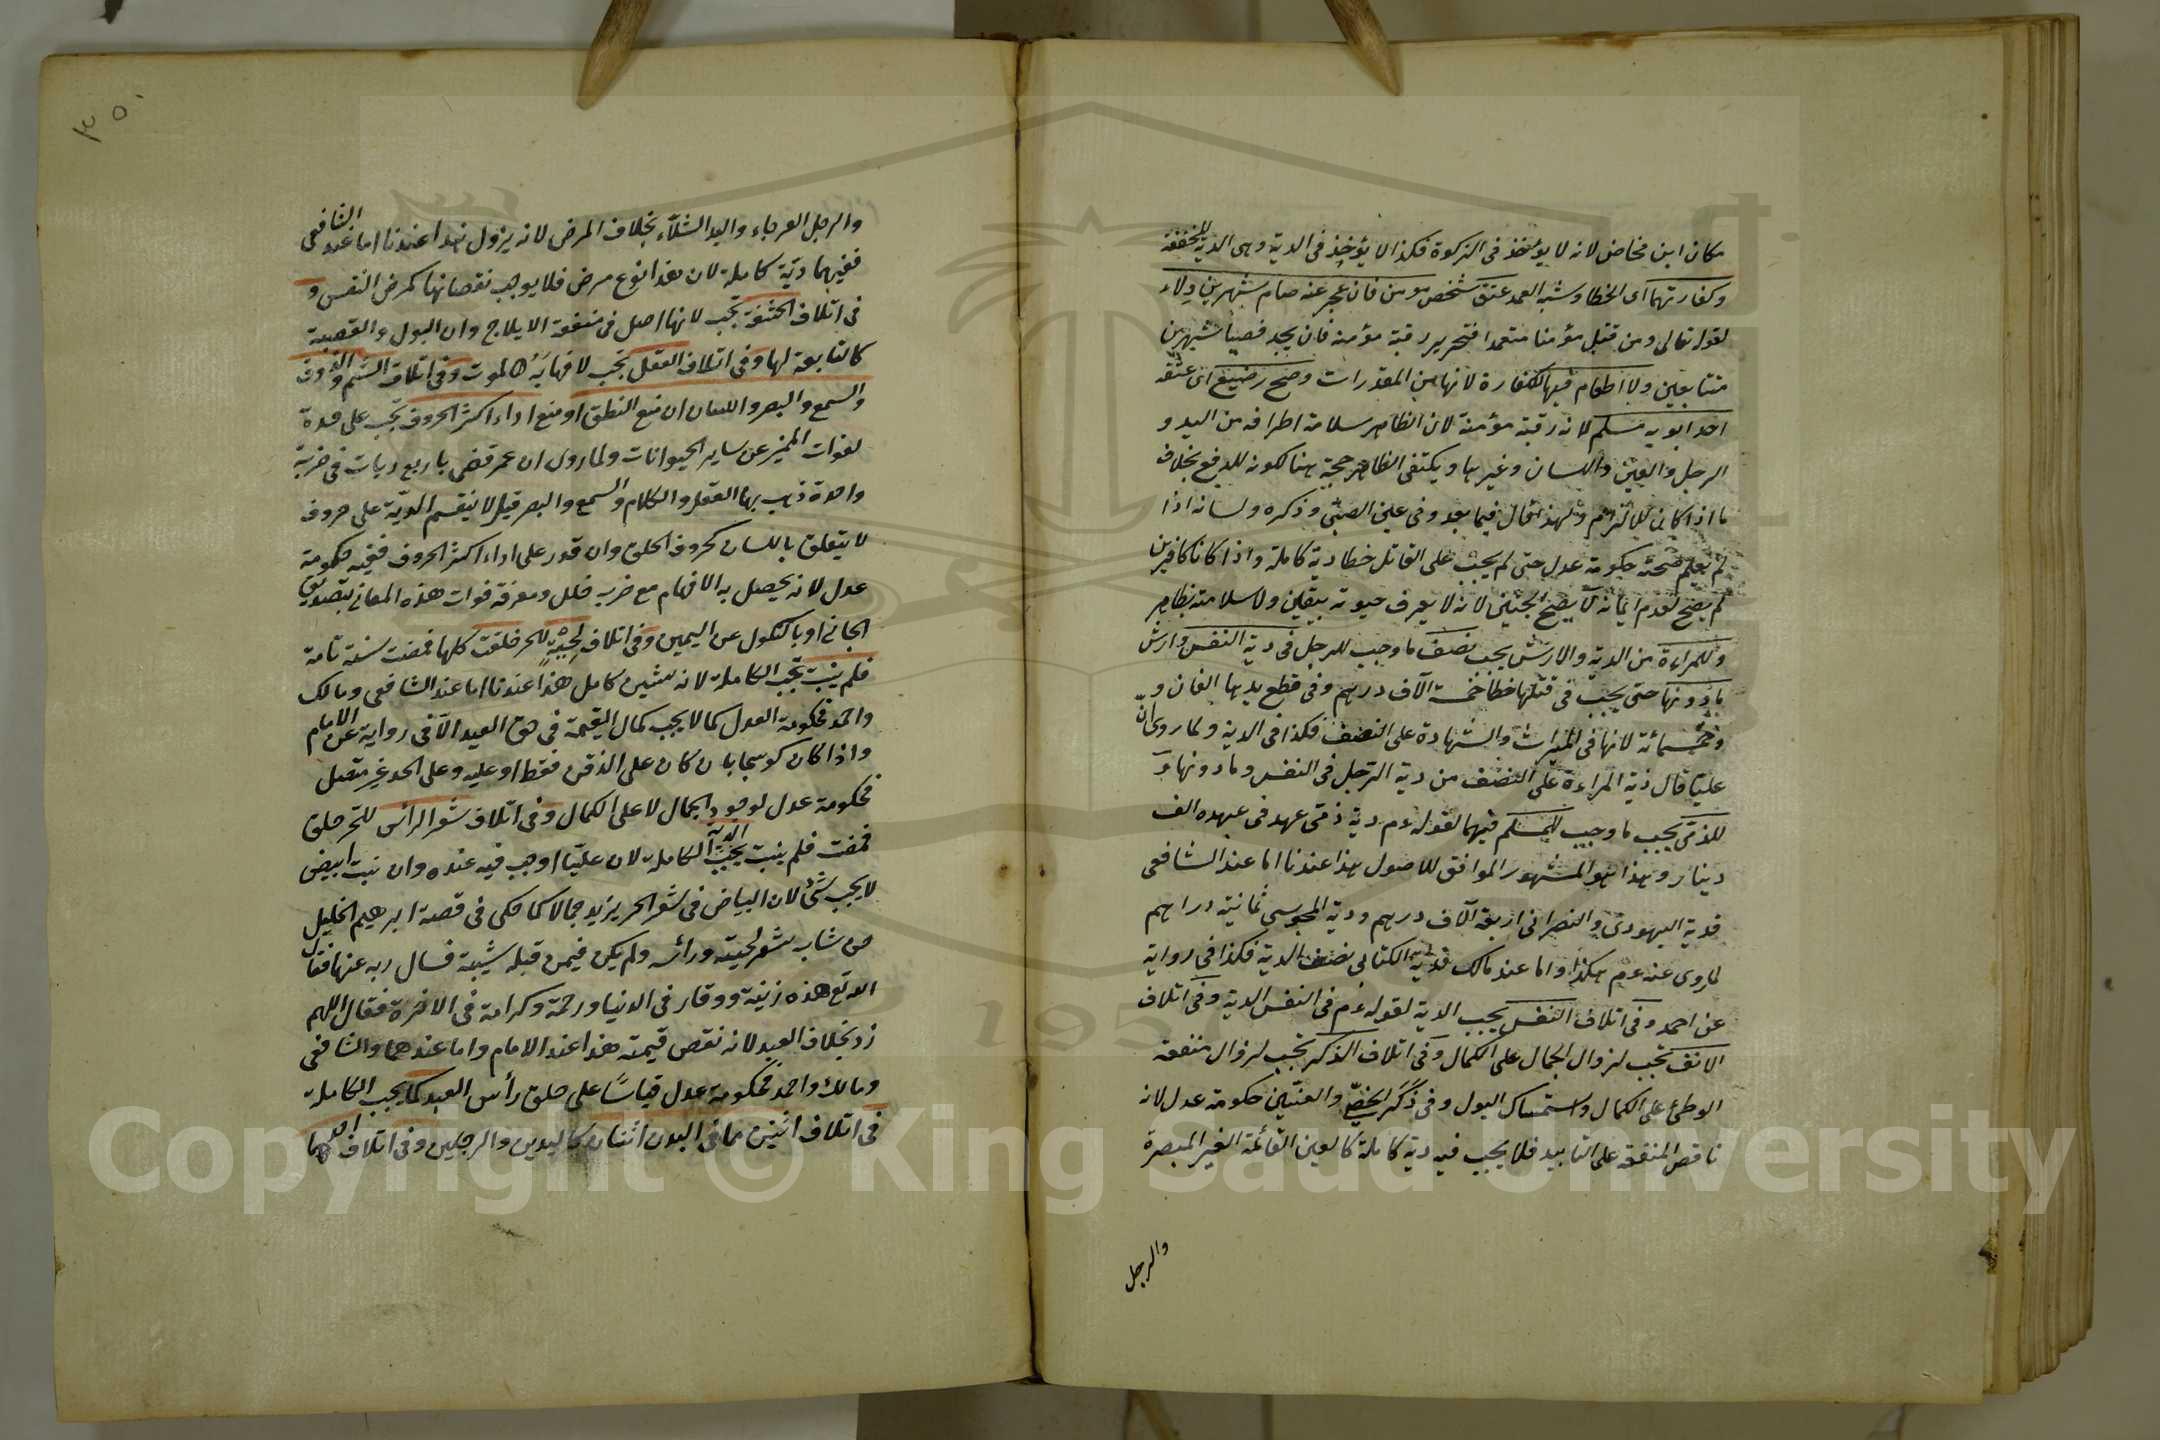 مكان ابن مخاض لانه لا يؤخذ في الزكوة فكذا لا يؤخذ في الدية وهى الدية المخففة
وكفارتهما اى الخطا وشبه العمد عتق شخص مومن فان عجز عنه صام شهرين ولاء
لقوله تعالى ومن قتل مؤمنا متعمدا فتحرير رقبة مؤمنة فان يجد فصيام شهرين
متتابعين ولا اطعام فيها للكفارة لانها من المقدرات وصح رضيع اى عتقه
احد ابويه مسلم لانه رقبة مؤمنة لان الظاهر سلامة اطرافه من اليد و
الرجل والعين واللسان وغيرها ويكتفى الظاهر حجة هنا لكونه للدفع بخلاف
ما اذا كان للالزام ولهذا قال فيما بعد وفى عين الصبى وذكره ولسانه اذا
لم يعلم صحته حكومة عدل حتى لم يجب على القاتل خطا دية كاملة واذا كانا كافرين
لم يصح لعدم ايمانه لا يصح الجنين لانه لا يعرف حيوته بيقين ولا سلامته بظاهر
وللمراءة من الدية والارش يجب نصف ما وجب للرجل فى دية النفس وارش
ما دونها حتى يجب فى قتلها خطا خمسة آلاف درهم وفى قطع يديها الفان و
وخمسمائة لانها فى الميراث والشهادة على النصف فكذا فى الدية ولما روى ان
عليا قال دية المراءة على النصف من دية الرجل فى النفس وما دونها و
للذمى يجب ما وجب للمسلم فيهما لقوله عم دية ذمى عهد فى عهده الف
دينار وهذا هو المشهور الموافق للاصول هذا عندنا اما عند الشافعى
فدية اليهودى والنصرانى اربعة آلاف درهم ودية المجوسى ثمانية دراهم
لما روى عنه عم هكذا واما عند مالك فدية الكتابى نصف الدية فكذا فى رواية
عن احمد وفى اتلاف النفس يجب الدية لقوله عم فى النفس الدية وفى اتلاف
الانف تجب لزوال الجمال على الكمال وفى اتلاف الذكر تجب لزوال منفعة
الوطئ على الكمال واستمساك البول وفى ذكر الخصى والعنين حكومة عدل لانه
ناقص المنفعة على التابيد فلا يجب فيه دية كاملة كالعين القائمة الغير المبصرة
والرجل
٣٥٠
والرجل العرجاء واليد الشلاء بخلاف المرض لانه يزول هذا عندنا اما عند الشافعى
ففيهما دية كاملة لان هذا نوع مرض فلا يوجب نقصانها كمرض النفس و
فى اتلاف الحشفة تجب لانها اصل فى منفعة الايلاج وان البول والقصبة
كالتابعة لها وفى اتلاف العقل تجب لا فهابه كالموت وفى اتلاف الشم والذوق
والسمع والبصر واللسان ان منع النطق او منع اداء اكثر الحروف تجب على حدة
لفوات المميز عن ساير الحيوانات ولما روى ان عمر قضى باربع ديات فى ضربة
واحدة ذهب بها العقل والكلام والسمع والبصر قيل لا ينقسم الدية على حروف
لا يتعلق باللسان كحروف الحلق وان قدر على اداء اكثر الحروف ففيه حكومة
عدل لانه يحصل به الافهام مع ضرب خلل ومعرفة فوات هذه المعانى بتصديق
الجانى او بالنكول عن اليمين وفى اتلاف لحية للحر حلقت كلها فمضت سنة تامة
فلم ينبت تجب الكاملة لانه شين كامل هذا عندنا اما عند الشافعى ومالك
واحمد فحكومة العدل كما لا يجب كمال القيمة فى حق العبد الا فى رواية عن الامام
واذا كان كوسجا بان كان على الذقن فقط او عليه وعلى الحد غير متصل
فحكومة عدل لوجود الجمال لا على الكمال وفى اتلاف شعر الراس للحر حلق
فمضت فلم ينبت يجب الدية الكاملة لان عليا اوجب فيه عنده وان نبت ابيض
لا يجب شئ لان البياض فى شعر الحر يزيد جمالا كما حكى فى قصة ابرهيم الخليل
من شاب شعر لحيته وراسه ولم يكن فيمن قبله شيبة فسال ربه عنها فقال
الله تع هذه زينة ووقار فى الدنيا ورحمة وكرامة فى الاخرة فقال اللهم
زد بخلاف العبد لانه نقص قيمته هذا عند الامام واما عندهما والشافعى
ومالك واحمد فحكومة عدل قياسا على حلق رأس العبد كما يجب الكاملة
فى اتلاف اثنين مما فى البدن اثنان كاليدين والرجلين وفى اتلاف
Copyright © King Saud University
1957